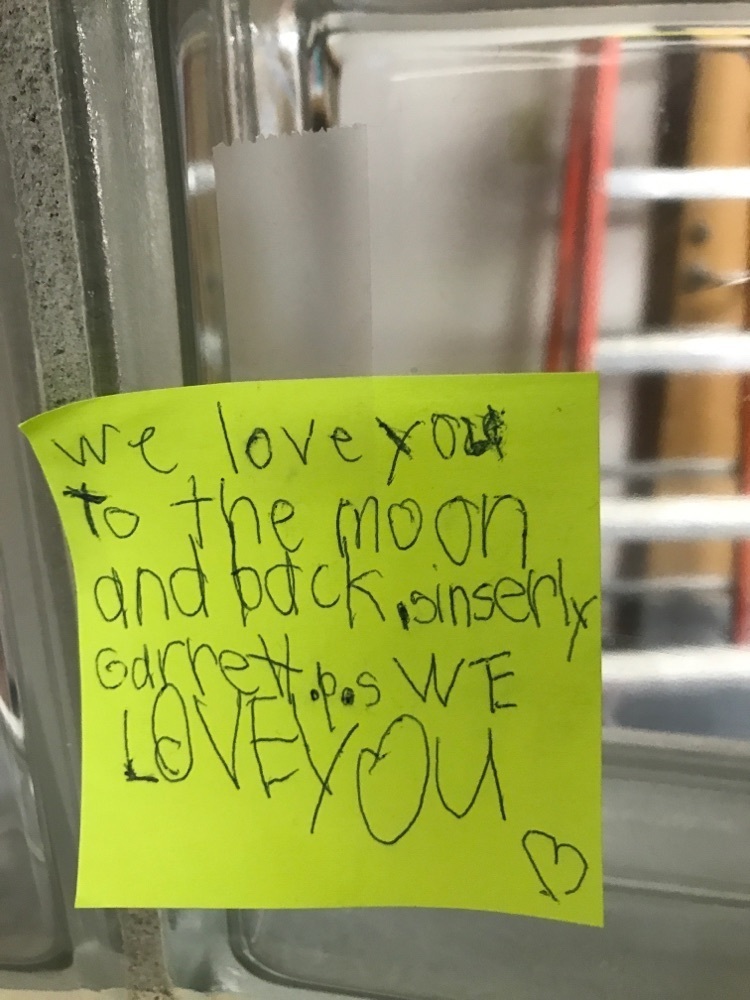 we love you
to the moon
and back,sinserly
Garrett.p.s WE
LOVEYOU